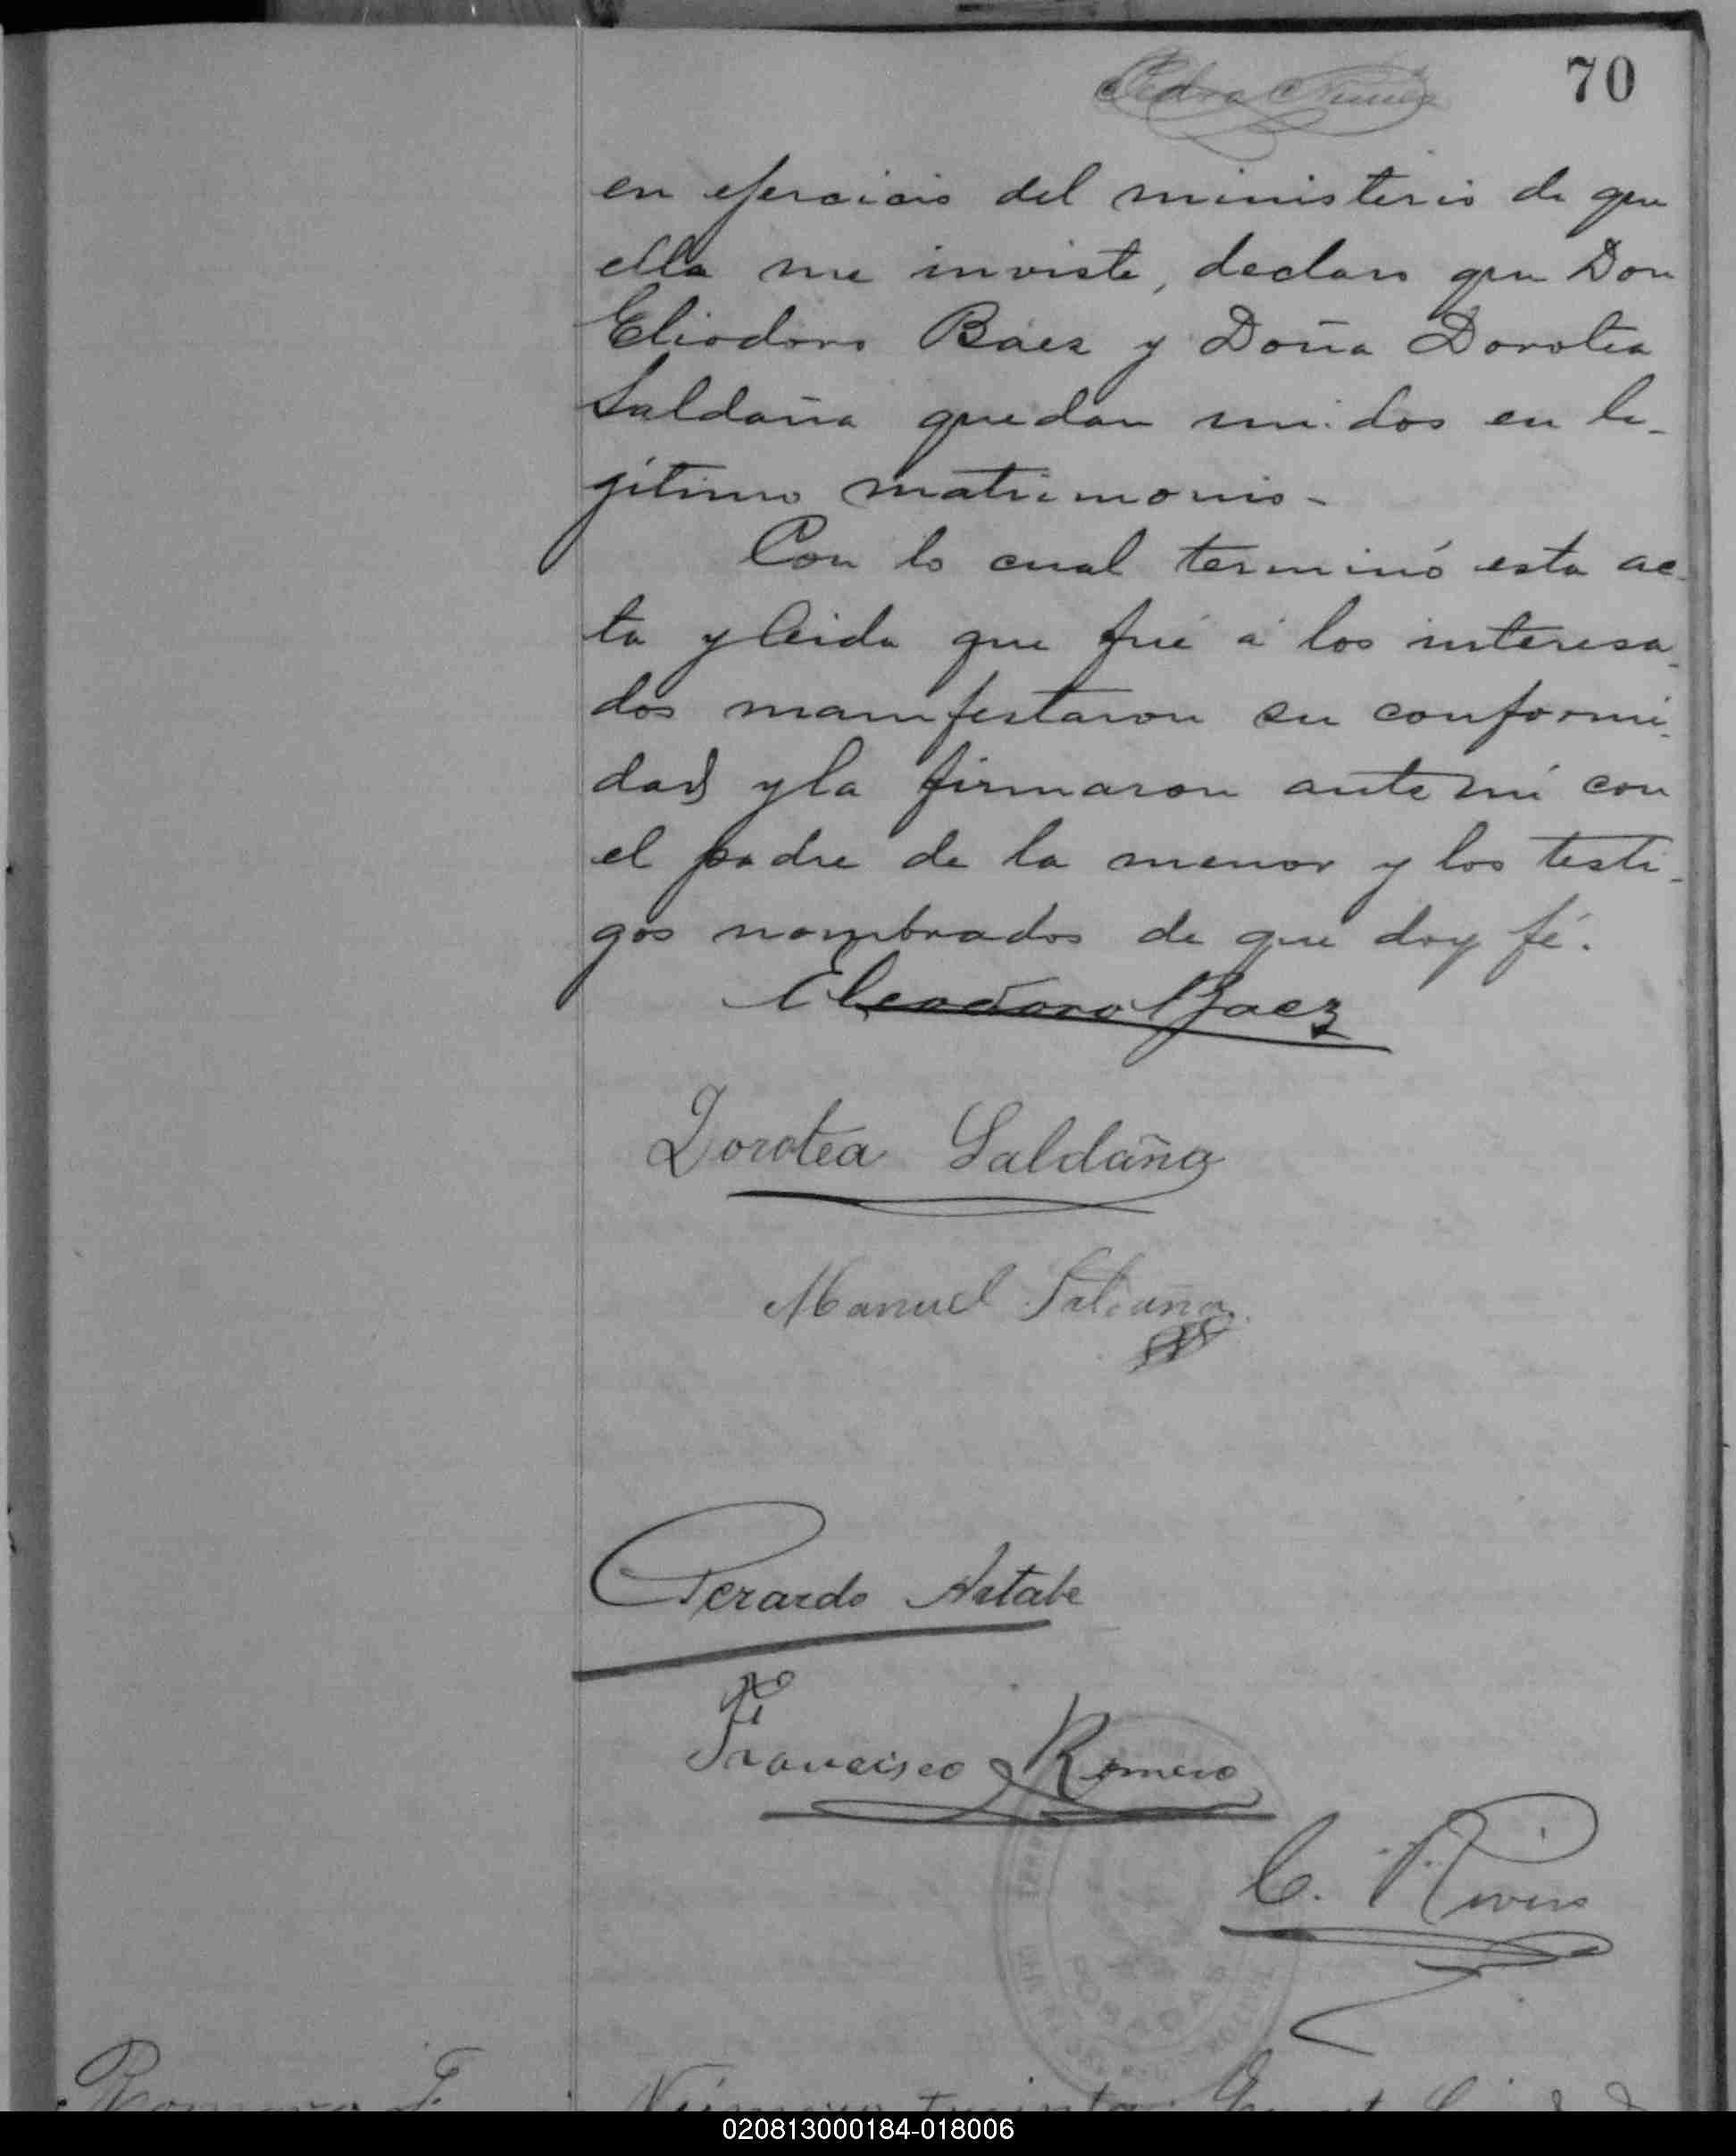 Pedro Nuñez
70
en ejercicio del ministerio de que
ella me inviste, declaro que Don
Eliodoro Báez y Doña Dorotea
Saldaña quedan unidos en le-
gítimo matrimonio-
Con lo cual terminó esta ac-
ta y leida que fué á los interesa-
dos manifestaron su conformi-
dad y la firmaron ante mi con
el padre de la menor y los testi-
gos nombrados de que doy fé.
Eleodoro Baez
Dorotea Saldaña
Manuel Saldaña
Gerardo
Francisco Romero
C. Rivero
POSADAS
Número treinta
020813000184-018006